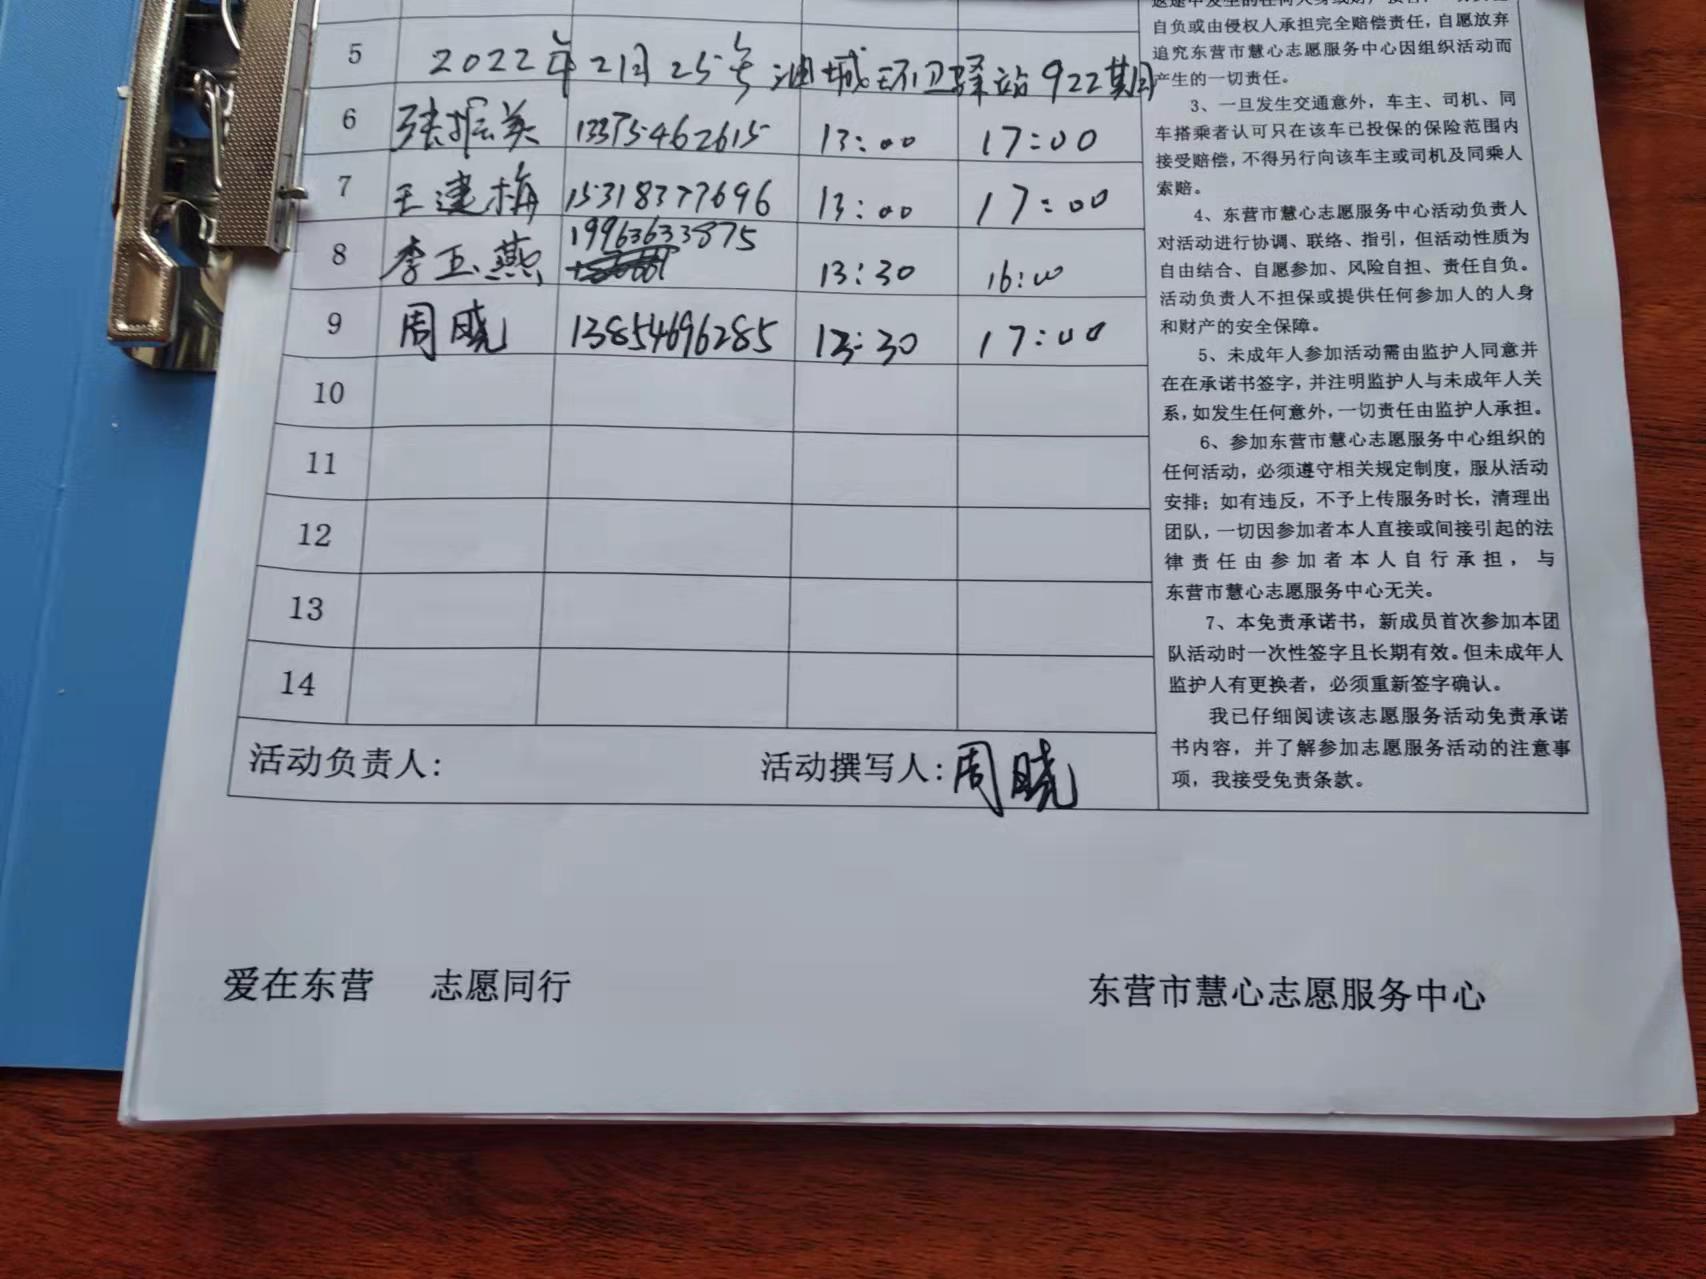 5 2022年2月25号油城环卫驿站922期
6 张振美 13375462615 13:00 17:00
7 王建梅 15318377696 13:00 17:00
8 李玉燕 19963633875 13:30 16:00
9 周晓 13854696285 13:30 17:00
10
11
12
13
14
活动负责人: 活动撰写人:周晓
自负或由侵权人承担完全赔偿责任,自愿放弃
追究东营市慧心志愿服务中心因组织活动而
产生的一切责任。
3、一旦发生交通意外,车主、司机、同
车搭乘者认可只在该车已投保的保险范围内
接受赔偿,不得另行向该车主或司机及同乘人
索赔。
4、东营市慧心志愿服务中心活动负责人
对活动进行协调、联络、指引,但活动性质为
自由结合、自愿参加、风险自担、责任自负。
活动负责人不担保或提供任何参加人的人身
和财产的安全保障。
5、未成年人参加活动需由监护人同意并
在在承诺书签字,并注明监护人与未成年人关
系,如发生任何意外,一切责任由监护人承担。
6、参加东营市慧心志愿服务中心组织的
任何活动,必须遵守相关规定制度,服从活动
安排;如有违反,不予上传服务时长,清理出
团队,一切因参加者本人直接或间接引起的法
律责任由参加者本人自行承担,与
东营市慧心志愿服务中心无关。
7、本免责承诺书,新成员首次参加本团
队活动时一次性签字且长期有效。但未成年人
监护人有更换者,必须重新签字确认。
我已仔细阅读该志愿服务活动免责承诺
书内容,并了解参加志愿服务活动的注意事
项,我接受免责条款。
爱在东营 志愿同行
东营市慧心志愿服务中心